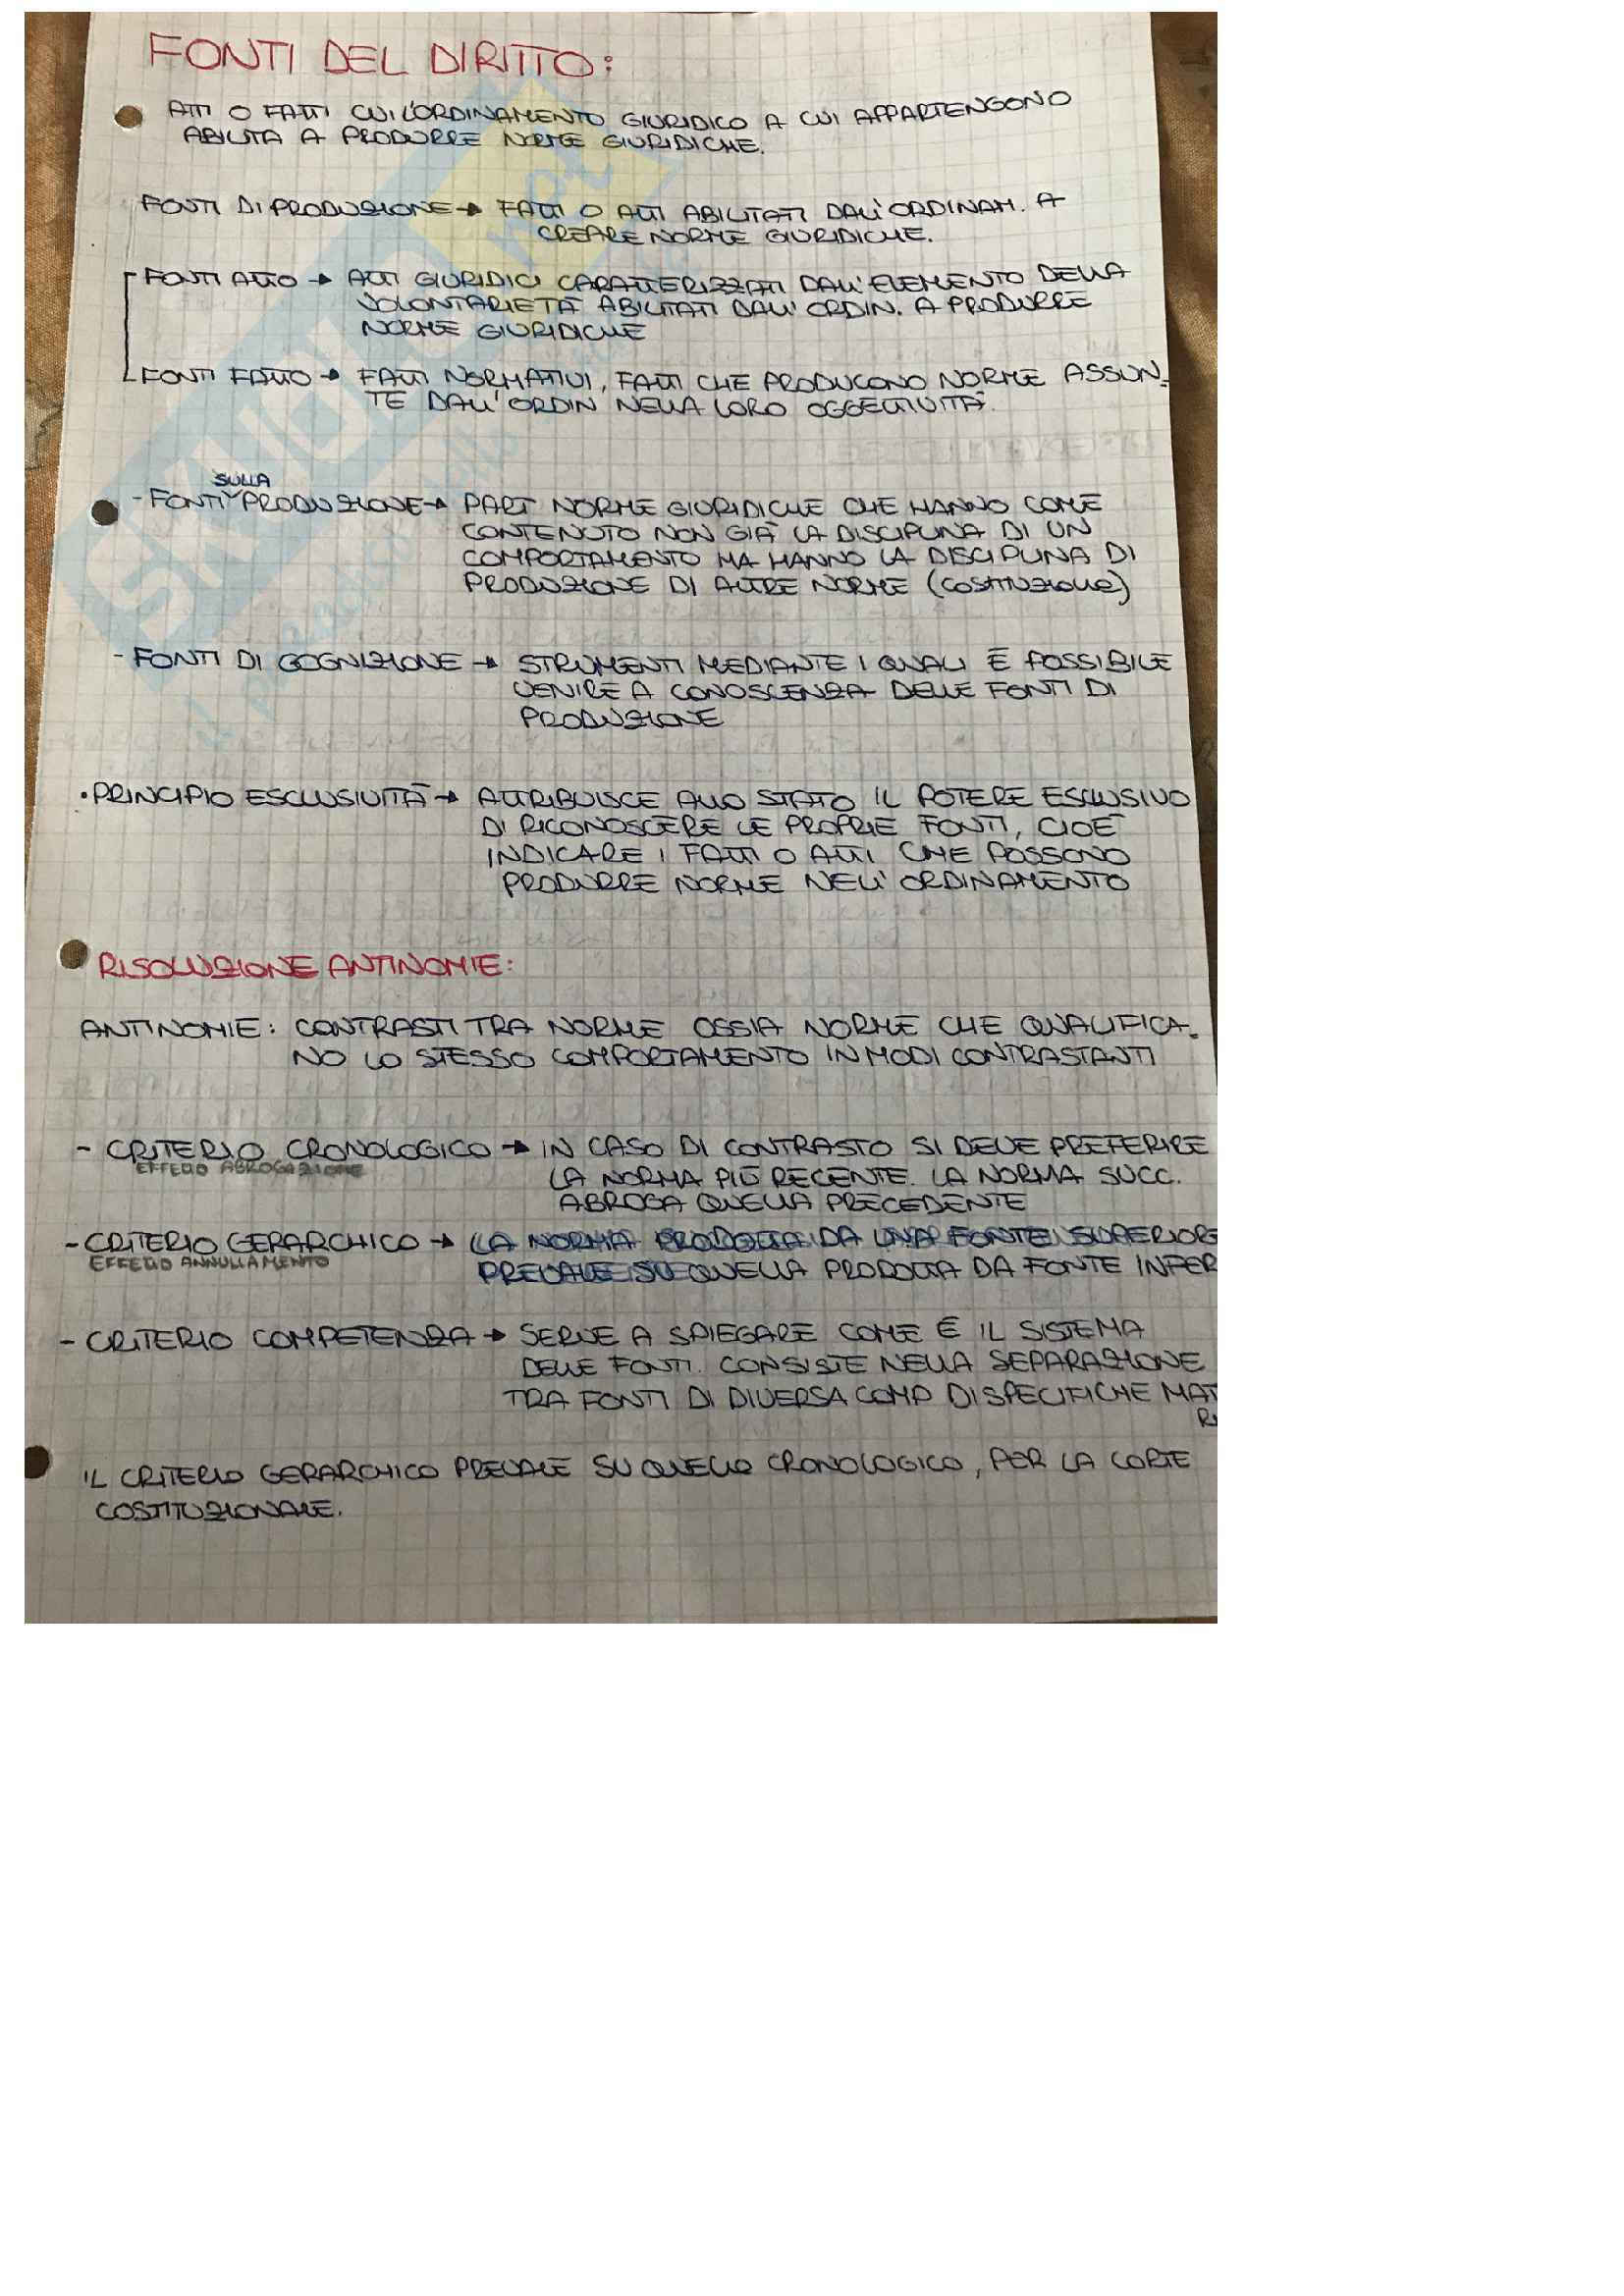 FONTI DEL DIRITTO:
ATTI O FATTI CUI L'ORDINAMENTO GIURIDICO A CUI APPARTENGONO
ABILITA A PRODURRE NORME GIURIDICHE.
FONTI DI PRODUZIONE → FATTI O ATTI ABILITATI DALL'ORDINAM. A
CREARE NORME GIURIDICHE.
FONTI ATTO → ATTI GIURIDICI CARATTERIZZATI DALL'ELEMENTO DELLA
VOLONTARIETÀ ABILITATI DALL'ORDIN. A PRODURRE
NORME GIURIDICHE
FONTI FATTO → FATTI NORMATIVI, FATTI CHE PRODUCONO NORME ASSUN-
TE DALL'ORDIN NELLA LORO OGGETTIVITÀ.
SULLA
- FONTI PRODUZIONE → PART NORME GIURIDICHE CHE HANNO COME
CONTENUTO NON GIÀ LA DISCIPLINA DI UN
COMPORTAMENTO MA HANNO LA DISCIPLINA DI
PRODUZIONE DI ALTRE NORME (COSTITUZIONE)
- FONTI DI COGNIZIONE → STRUMENTI MEDIANTE I QUALI È POSSIBILE
VENIRE A CONOSCENZA DELLE FONTI DI
PRODUZIONE
• PRINCIPIO ESCLUSIVITÀ → ATTRIBUISCE ALLO STATO IL POTERE ESCLUSIVO
DI RICONOSCERE LE PROPRIE FONTI, CIOÈ
INDICARE I FATTI O ATTI CHE POSSONO
PRODURRE NORME NELL'ORDINAMENTO
RISOLUZIONE ANTINOMIE:
ANTINOMIE: CONTRASTI TRA NORME OSSIA NORME CHE QUALIFICA-
NO LO STESSO COMPORTAMENTO IN MODI CONTRASTANTI
- CRITERIO CRONOLOGICO → IN CASO DI CONTRASTO SI DEVE PREFERIRE
EFFETTO ABROGAZIONE
LA NORMA PIÙ RECENTE. LA NORMA SUCC.
ABROGA QUELLA PRECEDENTE
- CRITERIO GERARCHICO → LA NORMA PRODOTTA DA UNA FONTE SUPERIORE
EFFETTO ANNULLAMENTO
PREVALE SU QUELLA PRODOTTA DA FONTE INFER
- CRITERIO COMPETENZA → SERVE A SPIEGARE COME È IL SISTEMA
DELLE FONTI. CONSISTE NELLA SEPARAZIONE
TRA FONTI DI DIVERSA COMP DI SPECIFICHE MAT
IL CRITERIO GERARCHICO PREVALE SU QUELLO CRONOLOGICO, PER LA CORTE
COSTITUZIONALE.